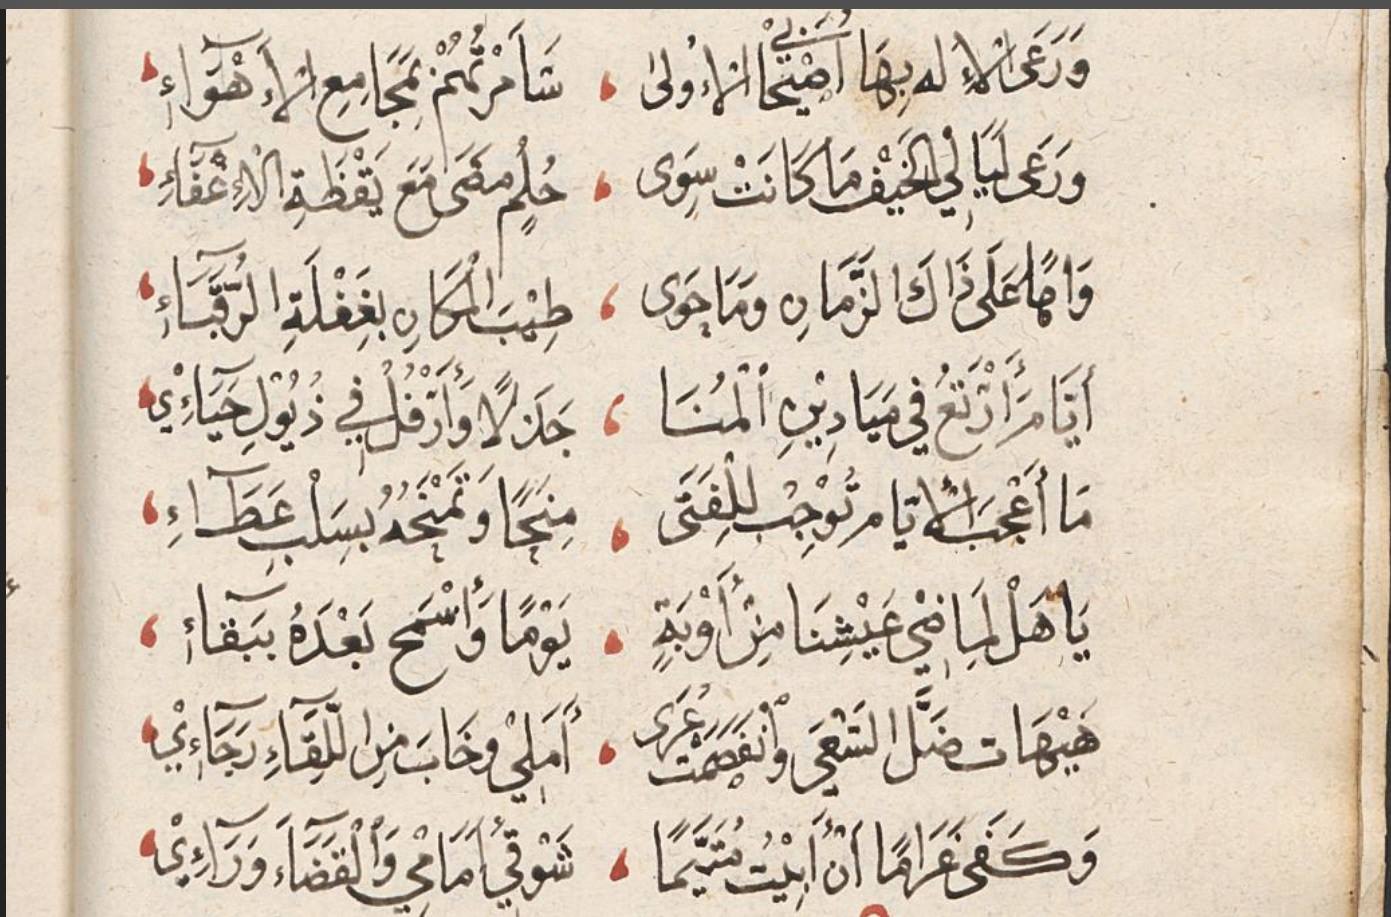 وَرَعَى الإله بِهَا أُصَيْحَابي الأولى سَامَرْتُهُمْ بِمَجَامِعِ الأَهْوَآءِ
وَرَعَى لَيَالِي الخَيْفِ مَا كَانَتْ سِوَى حُلُمٍ مَضَى مَعَ يَقْظَةِ الْإِغْفَآءِ
وَاهًا عَلَى ذَاكَ الزَّمَانِ وَمَا حَوَى طِيْبَ الْمَكَانِ بِغَفْلَةِ الرُّقَبَآءِ
أَيَّامَ أَرْتَعُ فِي مَيَادِيْنِ الْمُنَا جَذِلًا وَأَرْفُلُ فِي ذُيُوْلِ حَيَآءِيْ
مَا أَعْجَبَ الأَيَّامَ تُوْجِبُ لِلْفَتَى مِنَحًا وَتَمْنَحُهُ بِسَلْبِ عَطَآءِ
يَا هَلْ لِمَاضِي عَيْشِنَا مِنْ أَوْبَةٍ يَوْمًا وَأَسْمَح بَعْدَهُ بِبَقَآءِ
هَيْهَات ضَلَّ السَّعْيَ وَانْفَصَمَتْ عُرَى أَمَلِيْ وَخَابَ مِنَ اللِّقَآءِ رَجَآءِيْ
وَكَفَى غَرَامًا أَنْ أَبِيْتَ مُتَيَّمًا شَوْقِيْ أَمَامِيْ وَالْقَضَآءَ وَرَآءِيْ